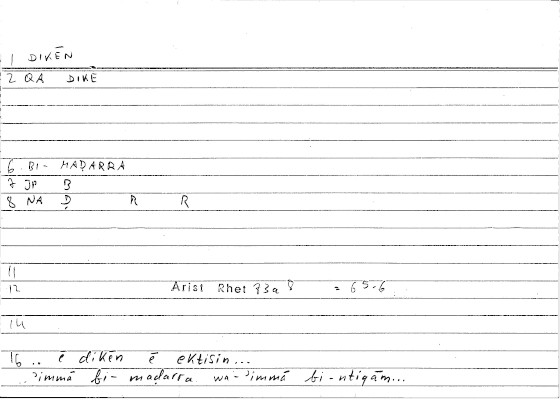 1 DIKĒN
2 QA DIKE
6 BI- MAḌARRA
7 JP B
8 NA Ḍ R R
11
12 Arist Rhet 73a 8 = 65.6
14
16 .. ē dikēn ē ektisin...
..ʾimmā bi- maḍarra wa-ʾimmā bi-ntiqām...